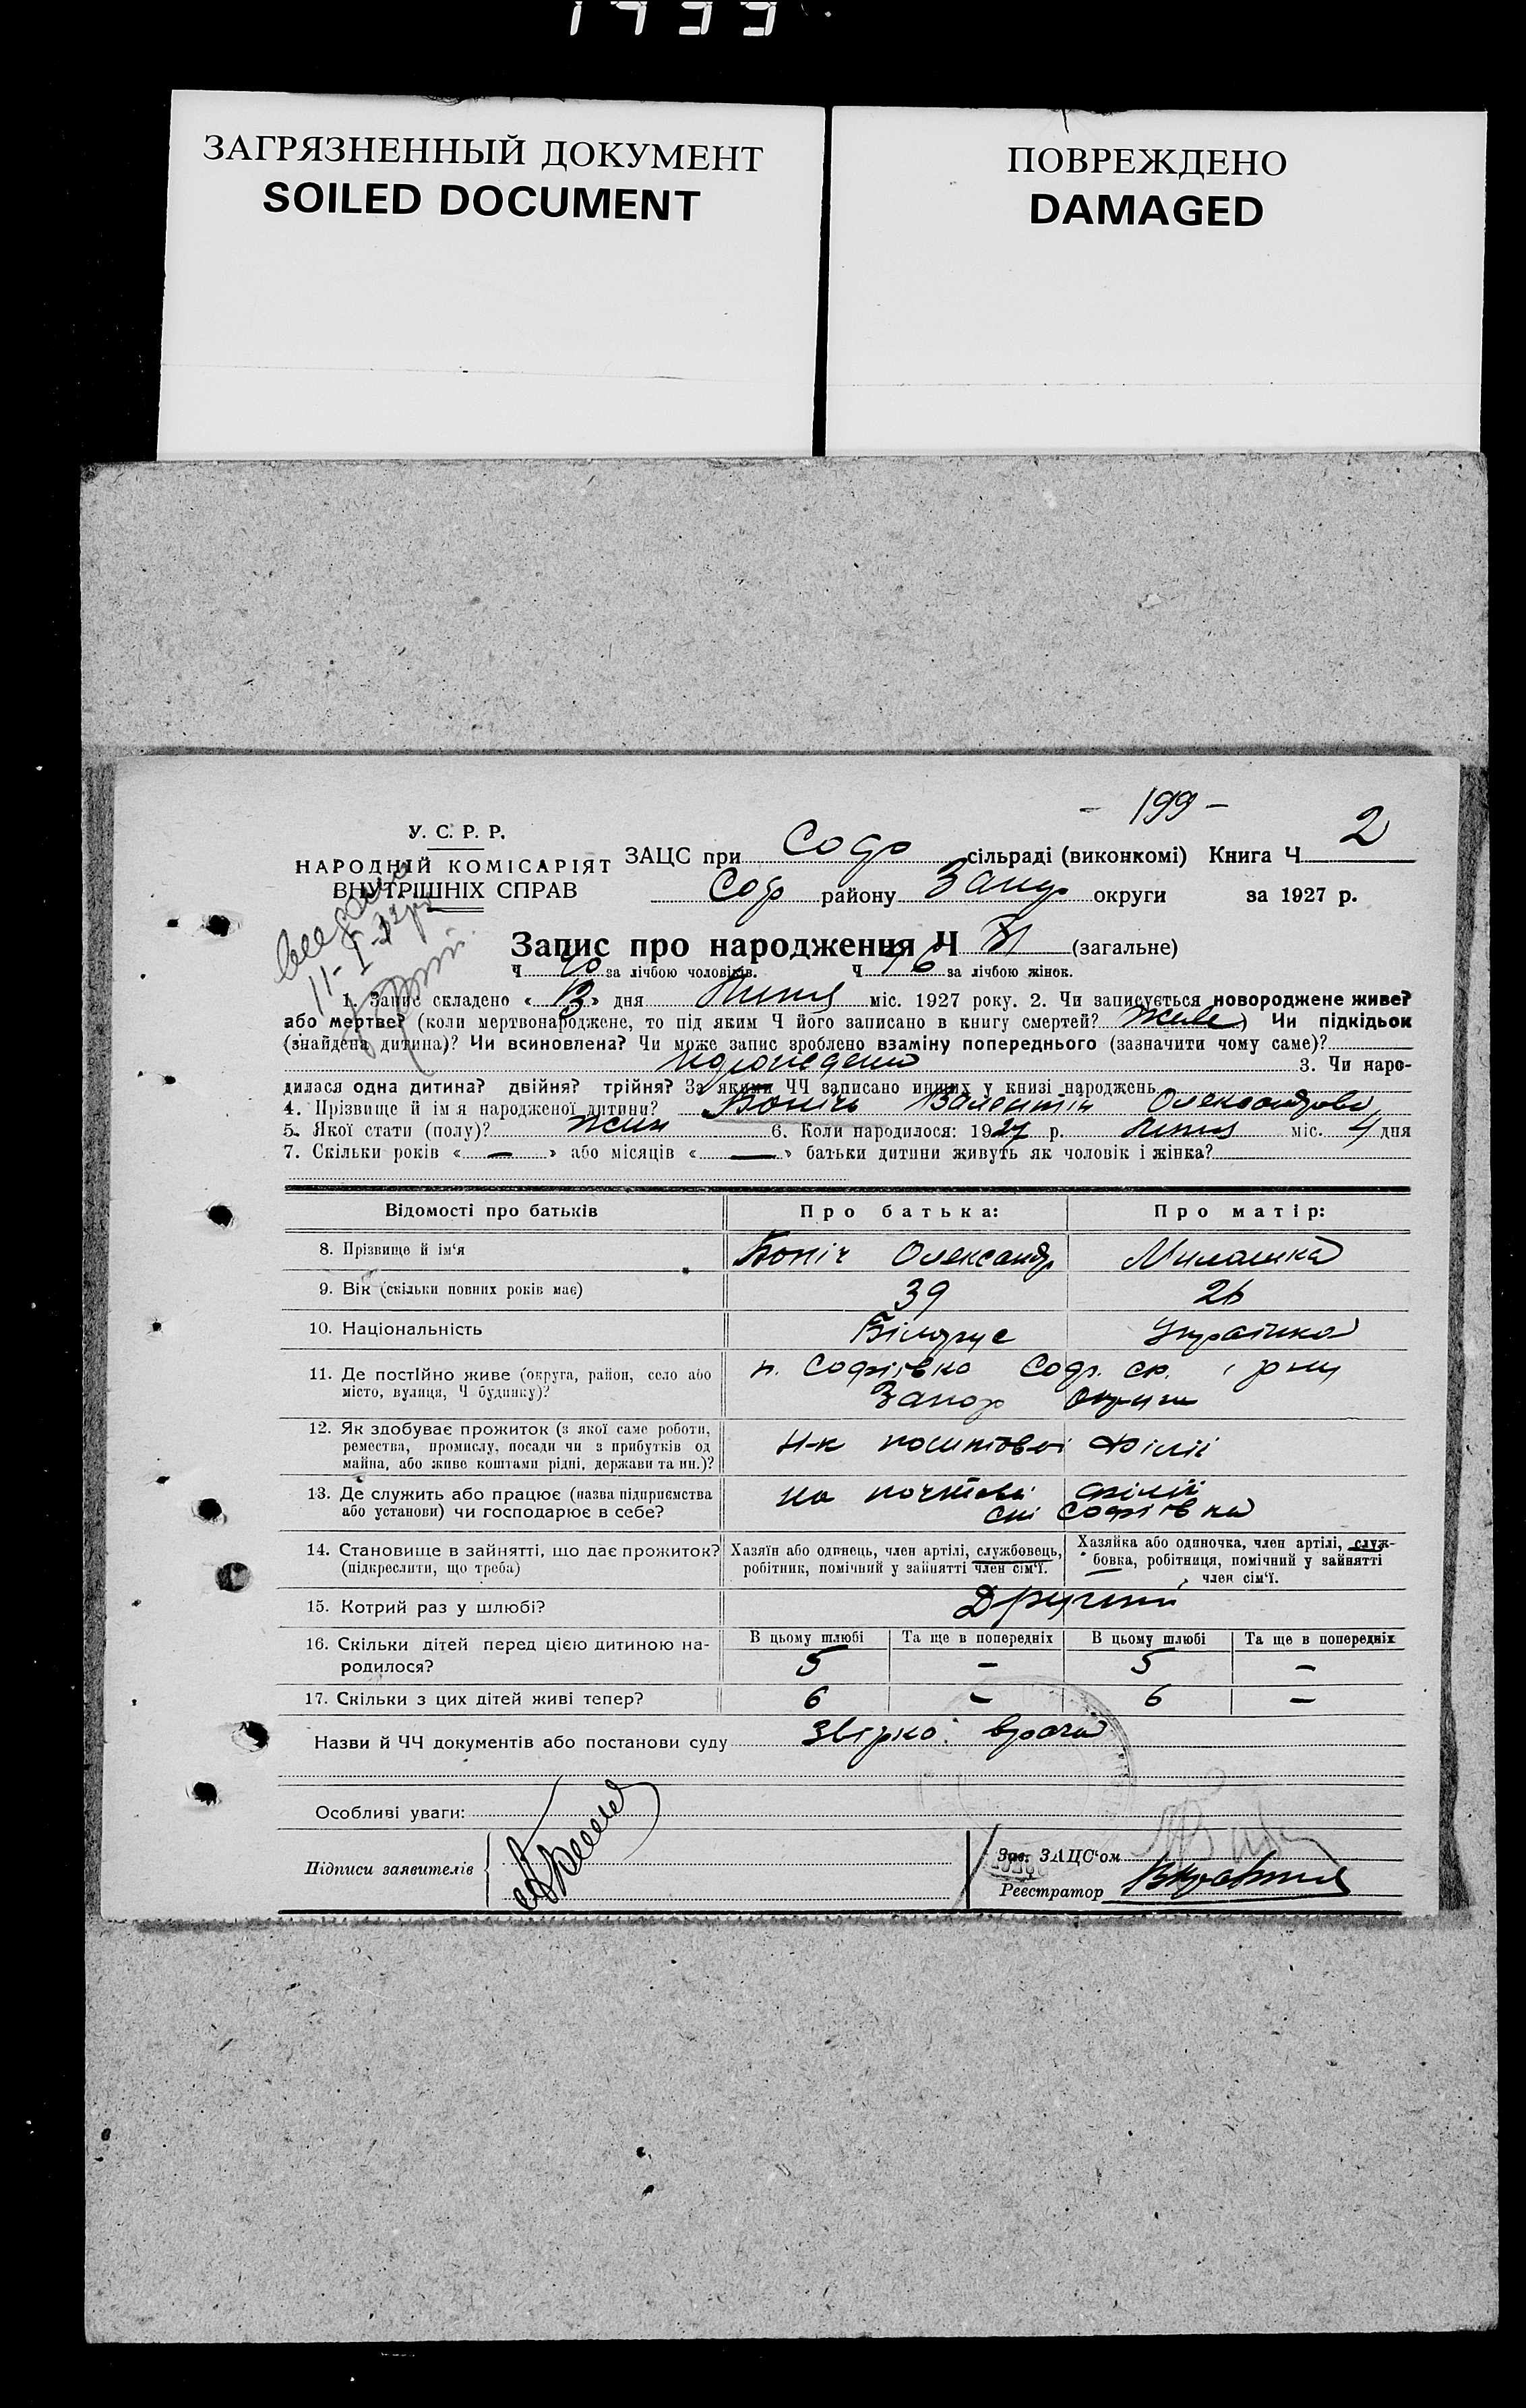 1933
ЗАГРЯЗНЕННЫЙ ДОКУМЕНТ
SOILED DOCUMENT
ПОВРЕЖДЕНО
DAMAGED
- 199 -
У. С. Р. Р.
НАРОДНІЙ КОМІСАРІЯТ
ВНУТРІШНІХ СПРАВ
ЗАЦС при Соф сільраді (виконкомі) Книга Ч 2
Соф району Запор округи за 1927 р.
Запис про народження Ч (загальне)
Ч за лічбою чоловіків. Ч 46 за лічбою жінок.
11-I-
1. Запис складено « 13 » дня Липня міс. 1927 року. 2. Чи записується новороджене живе?
або мертве? (коли мертвонароджене, то під яким Ч його записано в книгу смертей? Живе) Чи підкідьок
(знайдена дитина)? Чи всиновлена? Чи може запис зроблено взаміну попереднього (зазначити чому саме)?
народжено 3. Чи наро-
дилася одна дитина? двійня? трійня? За якими ЧЧ записано инших у книзі народжень
4. Прізвище й ім'я народженої дитини? Боніч Валентін Олександрова
5. Якої стати (полу)? жин 6. Коли народилося: 1927 р. Липня міс. 4 дня
7. Скільки років « — » або місяців « — » батьки дитини живуть як чоловік і жінка?
Відомості про батьків
Про батька:
Про матір:
8. Прізвище й ім'я
Боніч Олександр
9. Вік (скільки повних років має)
39
26
10. Національність
Білорус
Українка
11. Де постійно живе (округа, район, село або
місто, вулиця, Ч будинку)?
п. Софіївка Соф. ср. і р ну
Запор Округи
12. Як здобуває прожиток (з якої саме роботи,
ремества, промислу, посади чи з прибутків од
майна, або живе коштами рідні, держави та ин.)?
Н-к поштової філії
13. Де служить або працює (назва підприємства
або установи) чи господарює в себе?
На почтові філії
Софіївка
14. Становище в зайнятті, що дає прожиток?
(підкреслити, що треба)
Хазяїн або одинець, член артілі, службовець,
робітник, помічний у зайнятті член сім'ї.
Хазяйка або одиночка, член артілі, служ-
бовка, робітниця, помічний у зайнятті
член сім'ї.
15. Котрий раз у шлюбі?
Другий
16. Скільки дітей перед цією дитиною на-
родилося?
В цьому шлюбі
Та ще в попередніх
В цьому шлюбі
Та ще в попередніх
5 — 5 —
17. Скільки з цих дітей живі тепер?
6 — 6 —
Назви й ЧЧ документів або постанови суду Звірка: врача
Особливі уваги:
Підписи заявителів
Зав. ЗАЦС'ом
Реєстратор